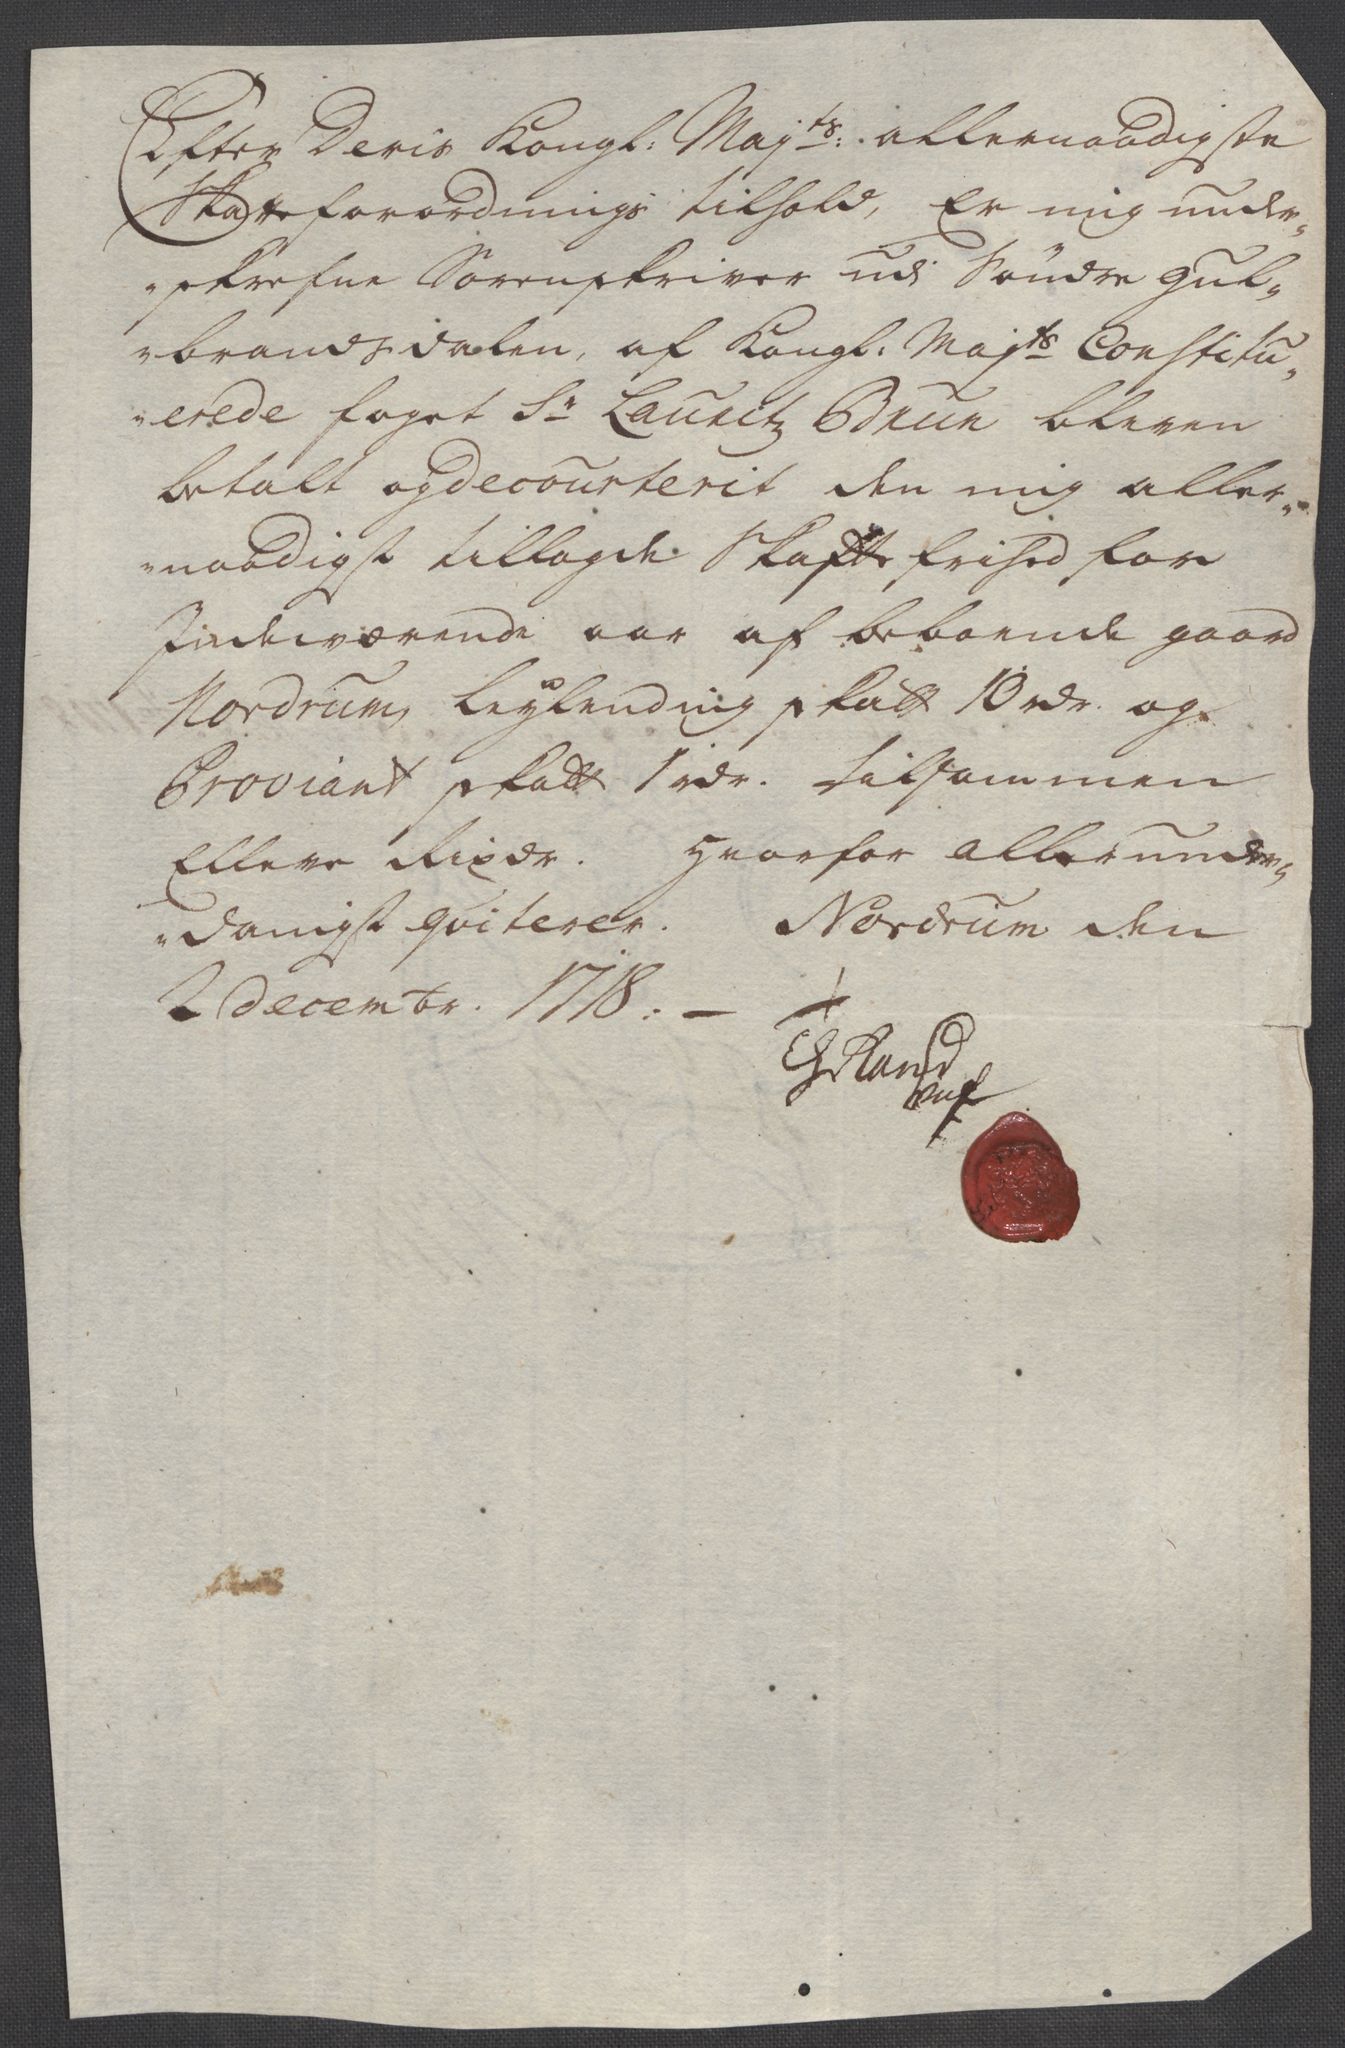 Efter Deris Kongl: Majts: allernaadigste
Skatteforordnings tilhold, Er mig under„
„skrefne Sorenskriver udi Søndre Gul„
„brandsdalen, af Kongl: Majts Constitu„
„erede foget Sr Lauritz Brun bleven
betalt og decourterit den mig aller„
„naadigst tillagde Skatte frihed for
Indeværende aar af beboende gaard
Nordrum, Leylending skatt 10 rdr. og
Proviant skatt 1 rdr. tilsammen
Elleve Rixdr. Hvorfor allerunder„
„danigst qviterer. Nordrum den
2 decembr. 1718. –